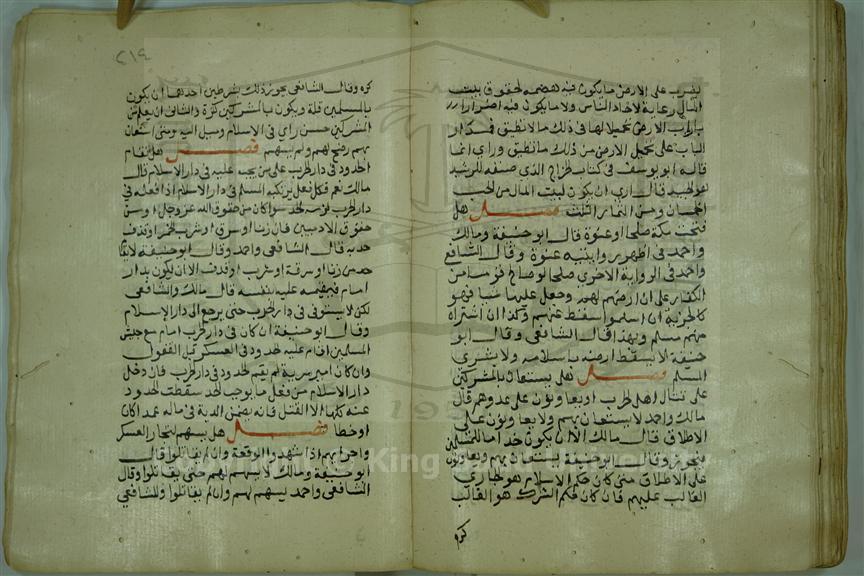 يضرب على الارض ما يكون فيه هضمه لحقوق بيت
المال رعاية لاحاد الناس ولا ما يكون فيه اضرارا
بارباب الارض تحميلا لها في ذلك ما لا تطيق فمدار
الباب على تحميل الارض من ذلك ما تطيق وراي انما
قاله ابو يوسف في كتاب الخراج الذي صنفه للرشيد
قال اري ان يكون لبيت المال من الحب
الخمسان ومن الثمار الثلث فصل هل
فتحت مكة صلحا او عنوة قال ابو حنيفة ومالك
واحمد في اظهر روايتيه عنوة وقال الشافعي
واحمد في الرواية الاخري صلحا لو صالح قوما من
الكفار على ان ارضهم لهم وجعل عليها شيا فهو
كالجزية ان اسلموا سقط عنهم وكذا ان اشتراه
منهم مسلم وبهذا قال الشافعي وقال ابو
حنيفة لا يسقط ارضه باسلامه ولا بشري
المسلم فصل هل يستعان بالمشركين
على قتال اهل الحرب او يعاونون على عدوهم قال
مالك واحمد لا يستعان بهم ولا يعاونون على
الاطلاق قال مالك الا ان يكون خداما للمسلمين
فيجوز وقال ابو حنيفة يستعان بهم ويعاونون
على الاطلاق متى كان حكم الاسلام هو الجاري
الغالب عليهم فان كان حكم الشرك هو الغالب
كره
٢١٤
كره وقال الشافعي يجوز ذلك بشرطين احدهما ان يكون
بالمسلمين قلة ويكون بالمشركين كثرة والثاني ان يعلم من
المشركين حسن راي في الاسلام وميل اليه ومتى استعان
بهم رضخ لهم ولم يسهم فصل هل تقام
الحدود في دار الحرب على من يجب عليه في دار الاسلام قال
مالك نعم فكل فعل يرتكبه المسلم في دار الاسلام اذا فعله في
دار الحرب لزمه الحد سوا كان من حقوق الله عز وجل او من
حقوق الادميين فان زنا او سرق او شرب الخمر او قذف
حد به قال الشافعي واحمد وقال ابو حنيفة لا يقام
حد من زنا او سرقة او شرب او قذف الا ان يكون بدار
امام فيقيمه عليه بنفسه قال مالك والشافعي
لكن لا يستوفى في دار الحرب حتى يرجع الى دار الاسلام
وقال ابو حنيفة ان كان في دار الحرب امام مع جيش
المسلمين اقام عليه الحدود في العسكر قبل القفول
وان كان امير سرية لم يقم الحدود في دار الحرب فان دخل
دار الاسلام من فعل ما يوجب الحد سقطت الحدود
عنه كلها الا القتل فانه يضمن الدية في ماله عمدا كان
او خطا فصل هل يسهم لتجار العسكر
واجرايهم اذا شهدوا الوقعة وان لم يقاتلوا قال
ابو حنيفة ومالك لا يسهم لهم حتى يقاتلوا وقال
الشافعي واحمد يسهم لهم وان لم يقاتلوا وللشافعي